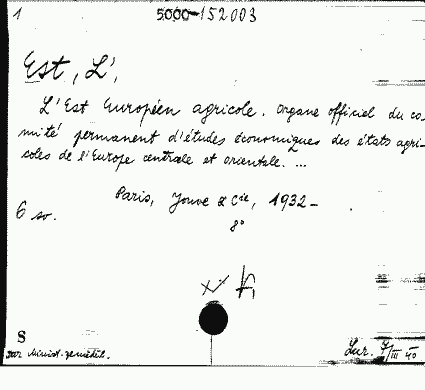 1 5000-152003
Est, L',
L'Est Européen agricole. Organe officiel du co-
mité permanent d'études économiques des états agri-
coles de l'Europe centrale et orientale. ...
Paris, Jouve & Cie, 1932-
8°
6 so.
S
dar minist. zeměděl.
7/III 40